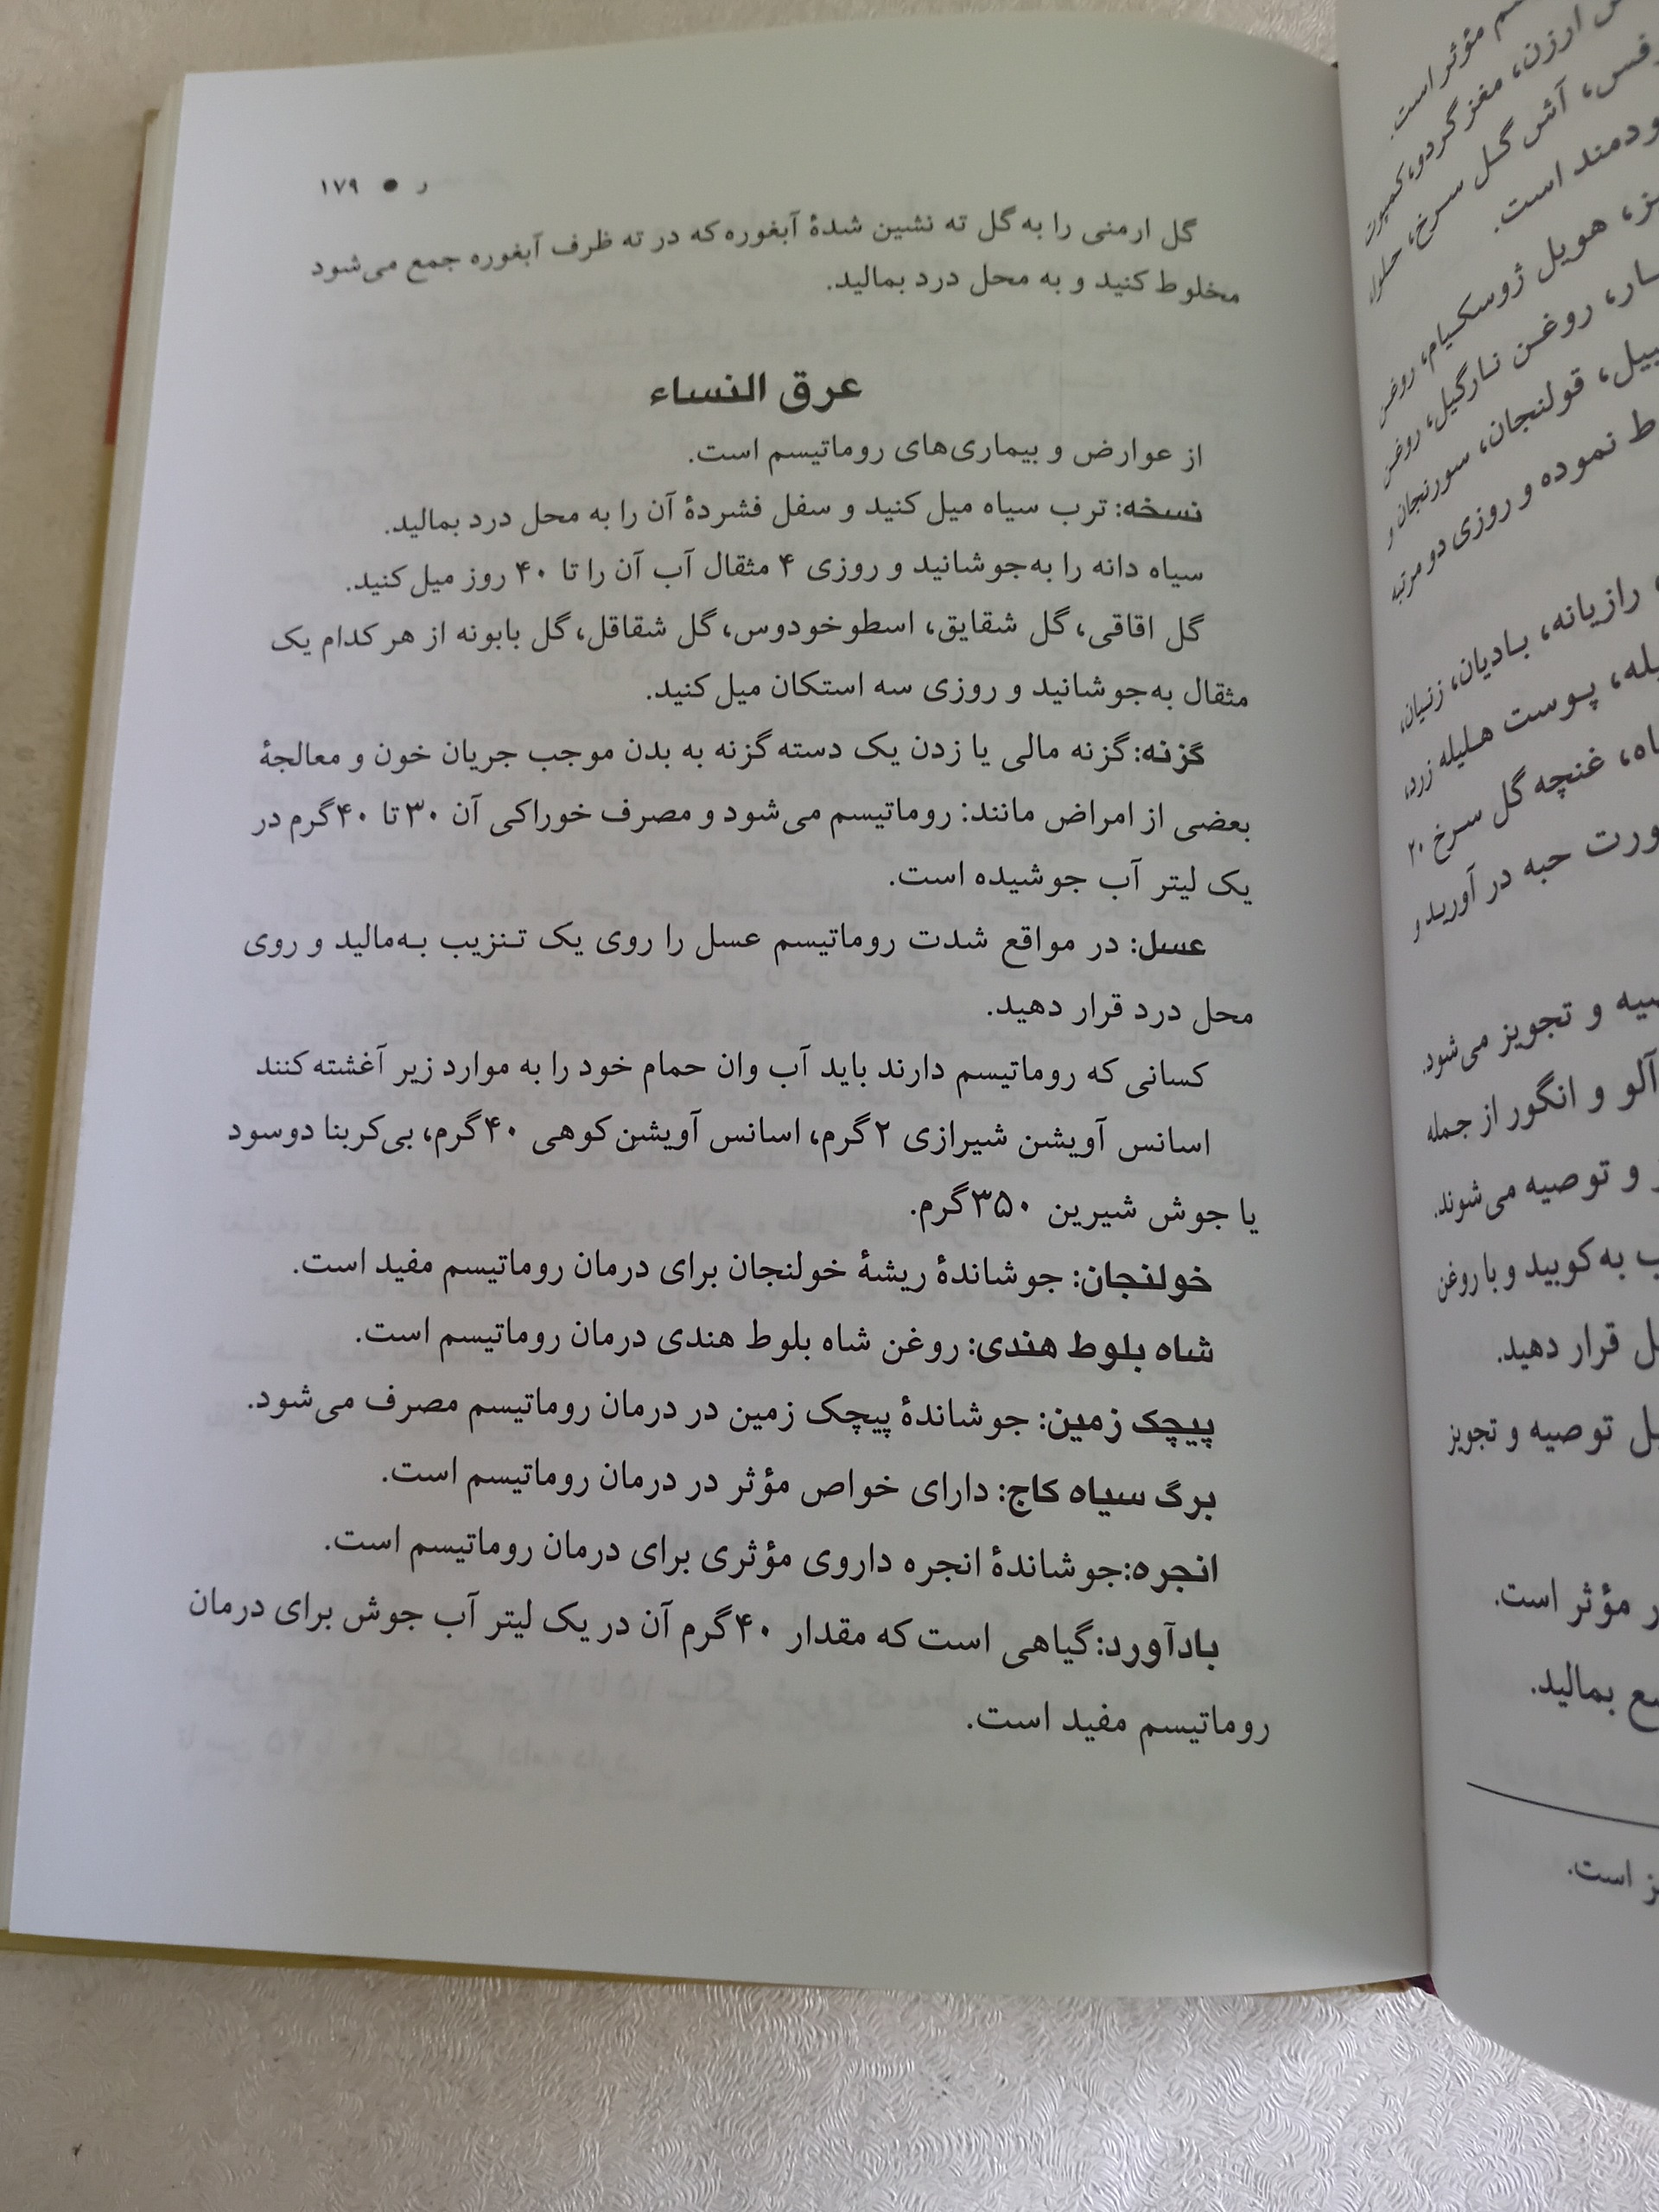 ر ● ۱۷۹
گل ارمنی را به گل ته نشین شدهٔ آبغوره که در ته ظرف آبغوره جمع می‌شود
مخلوط کنید و به محل درد بمالید.
عرق النساء
از عوارض و بیماری‌های روماتیسم است.
نسخه: ترب سیاه میل کنید و سفل فشردهٔ آن را به محل درد بمالید.
سیاه دانه را به‌جوشانید و روزی ۴ مثقال آب آن را تا ۴۰ روز میل کنید.
گل اقاقی، گل شقایق، اسطوخودوس، گل شقاقل، گل بابونه از هر کدام یک
مثقال به‌جوشانید و روزی سه استکان میل کنید.
گزنه: گزنه مالی یا زدن یک دسته گزنه به بدن موجب جریان خون و معالجهٔ
بعضی از امراض مانند: روماتیسم می‌شود و مصرف خوراکی آن ۳۰ تا ۴۰ گرم در
یک لیتر آب جوشیده است.
عسل: در مواقع شدت روماتیسم عسل را روی یک تنزیب به‌مالید و روی
محل درد قرار دهید.
کسانی که روماتیسم دارند باید آب وان حمام خود را به موارد زیر آغشته کنند
اسانس آویشن شیرازی ۲ گرم، اسانس آویشن کوهی ۴۰ گرم، بی‌کربنا دوسود
یا جوش شیرین ۳۵۰ گرم.
خولنجان: جوشاندهٔ ریشهٔ خولنجان برای درمان روماتیسم مفید است.
شاه بلوط هندی: روغن شاه بلوط هندی درمان روماتیسم است.
پیچک زمین: جوشاندهٔ پیچک زمین در درمان روماتیسم مصرف می‌شود.
برگ سیاه کاج: دارای خواص مؤثر در درمان روماتیسم است.
انجره: جوشاندهٔ انجره داروی مؤثری برای درمان روماتیسم است.
بادآورد: گیاهی است که مقدار ۴۰ گرم آن در یک لیتر آب جوش برای درمان
روماتیسم مفید است.
مؤثر است.
ارزن، مغز گردو، کمپوت
آش گل سرخ، حلوا،
است.
هویل ژوسکیام، روغن
روغن نارگیل، روغن
قولنجان، سورنجان و
نموده و روزی دو مرتبه
رازیانه، بادیان، زنیان،
پوست هلیله زرد،
غنچه گل سرخ ۲۰
حبه در آورید و
و تجویز می‌شود.
آلو و انگور از جمله
و توصیه می‌شوند.
به‌کوبید و با روغن
قرار دهید.
توصیه و تجویز
مؤثر است.
بمالید.
است.